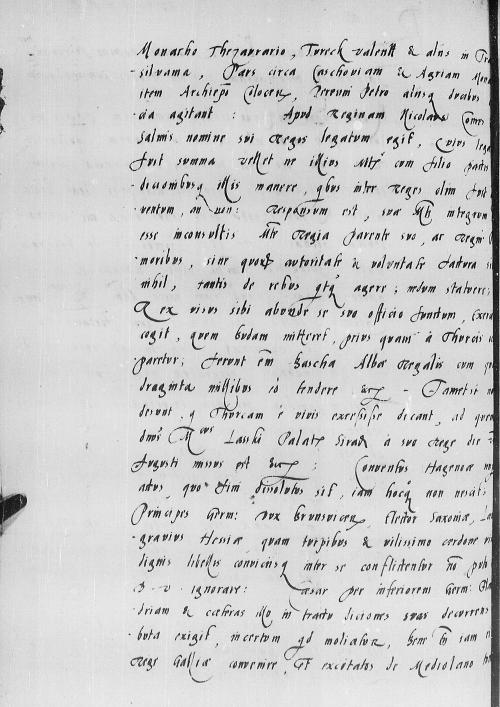 Monacho Thezaurario, Tureck valentt & alijs in Tra
silvania, Pars circa Caschoviam & Agriam
item Archiepo Colocen, Perenni Petro aliisq ducibus
dia agitant : Apud Reginam Nicolaus Comes
Salmis nomine sui Regis legatum egit, Cuius lega
fuit summa vellet ne illius Mts cum filio partes
dicionibusq illis manere, qbus inter Reges olim fuit
ventum, an non: Responsum est, suae Mti integrum
esse inconsultis Mte Regia parente suo, ac Regni
moribus, sine quor autoritate & voluntate factura si
nihil, tantis de rebus qcq agere; nedum statuere;
Rex visus sibi abunde se suo officio functum, Exer
cogit, quem Budam mitteret, prius quam à Thurcis
paretur; Ferunt em Bascha Albae Regalis cum qua
draginta millibus eo tendere &c - Tametsi no
desunt, q Thurcam è vivis excessisse dicant, ad quem
dnus Lasski Palats Sirad à suo Rege die
Augusti missus est &c : Conventus Hagenoae
actus, quo fini dissolutus sit, iam hocq non nescitis
Principes Germ: Dux Brunsvicen, Elector Saxoniae, Lan
gravius Hessiae quam turpibus & vilissimo cerdone
dignis libellis conviciisq inter se conflictentur no potest
D. V. ignorare: Caesar per inferiorem Germ: Flan
driam & caeteras illo in tractu diciones suas decurrens
buta exigit, incertum qd moliatur, bene tn iam
Rege Galliae convenire, Et excitatos de Mediolano